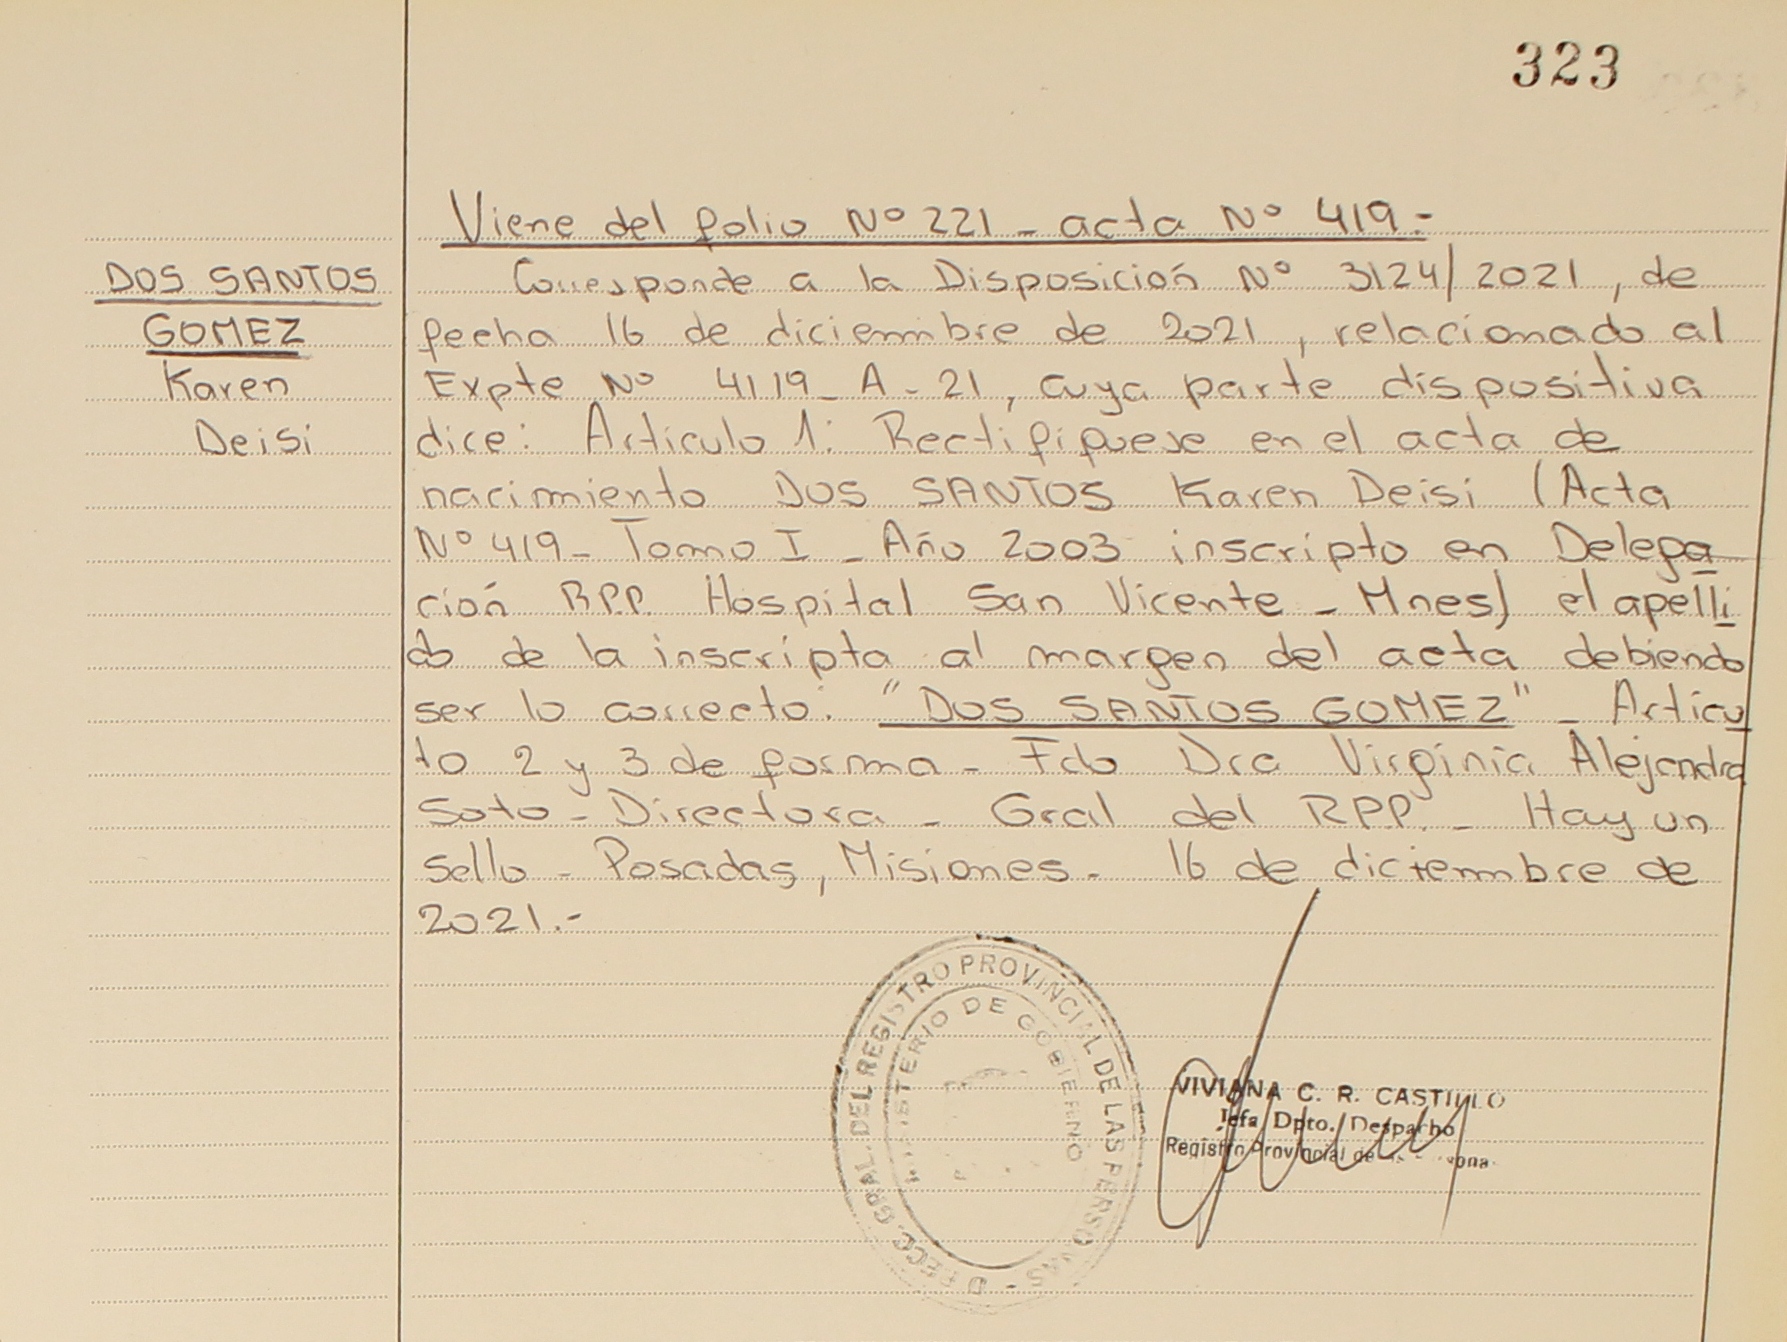 323
Viene del folio Nº 221 - acta Nº 419.-
DOS SANTOS
GOMEZ
Karen
Deisi
Corresponde a la Disposición Nº 3124/2021, de
fecha 16 de diciembre de 2021, relacionado al
Expte Nº 4119 - A - 21, cuya parte dispositiva
dice: Artículo 1: Rectifíquese en el acta de
nacimiento DOS SANTOS Karen Deisi (Acta
Nº 419 - Tomo I - Año 2003 inscripto en Delega
ción R.P.P. Hospital San Vicente - Mnes) el apelli
do de la inscripta al margen del acta debiendo
ser lo correcto: "DOS SANTOS GOMEZ" - Artícu
lo 2 y 3 de forma - Fdo Dra Virginia Alejandra
Soto - Directora - Gral del RPP. - Hay un
sello - Posadas, Misiones - 16 de diciembre de
2021.-
DIRECC. GRAL. DEL REGISTRO PROVINCIAL DE LAS PERSONAS -
MINISTERIO DE GOBIERNO
VIVIANA C. R. CASTILLO
Jefa Dpto. Despacho
Registro Provincial de